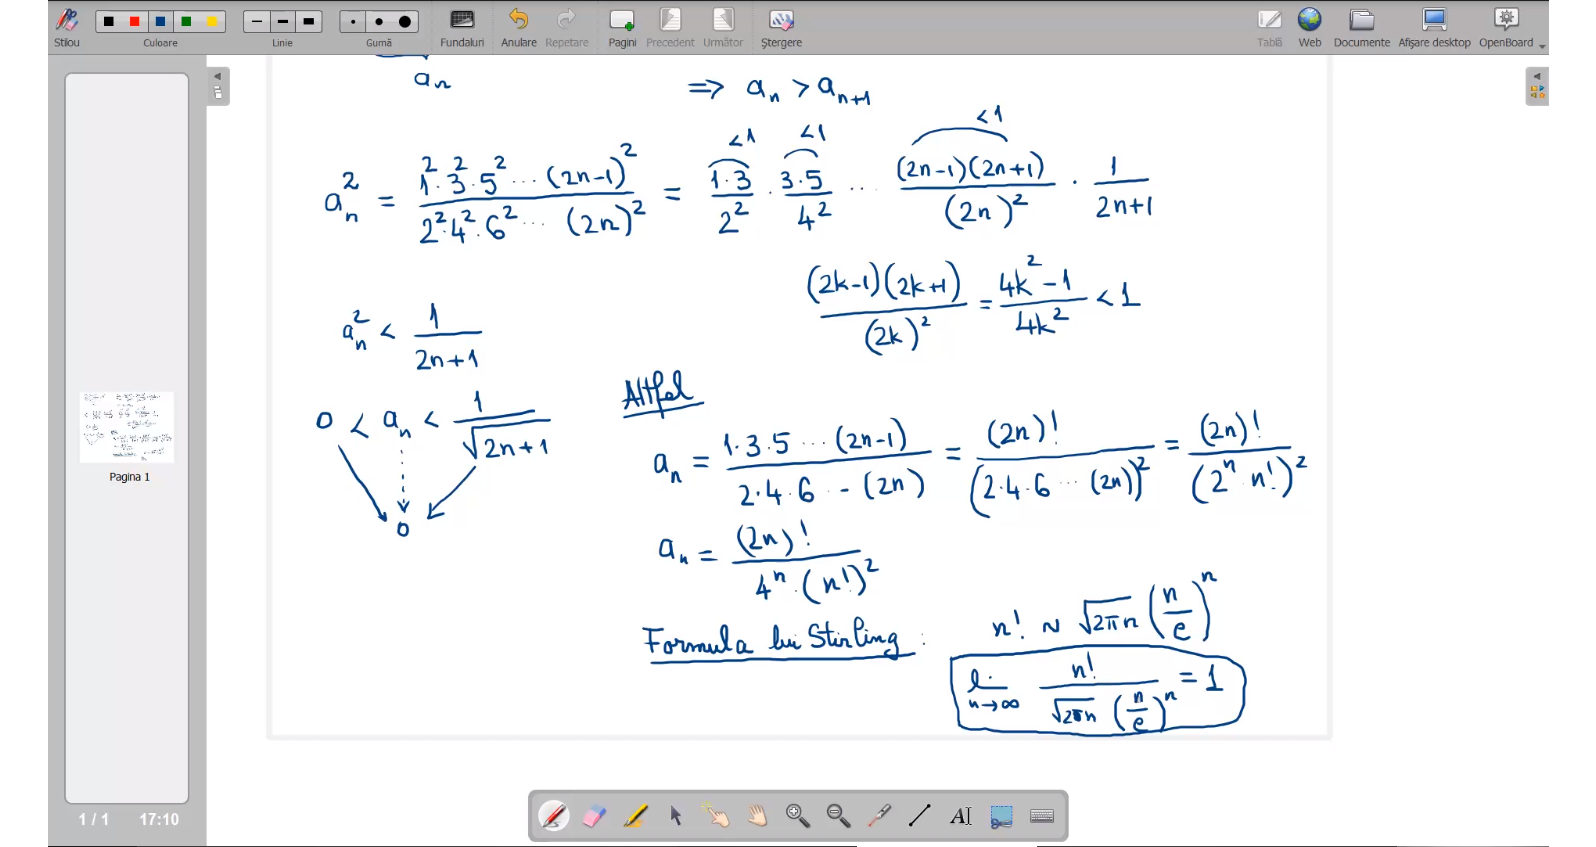 Stilou Culoare Linie Gumă Fundaluri Anulare Repetare Pagini Precedent Următor Ștergere Tablă Web Documente Afișare desktop OpenBoard
a_n
⟹ a_n > a_{n+1}
<1 <1 <1
a_n^2 = \frac{1^2·3^2·5^2 ··· (2n-1)^2}{2^2·4^2·6^2 ··· (2n)^2} = \frac{1·3}{2^2} · \frac{3·5}{4^2} ··· \frac{(2n-1)(2n+1)}{(2n)^2} · \frac{1}{2n+1}
\frac{(2k-1)(2k+1)}{(2k)^2} = \frac{4k^2-1}{4k^2} < 1
a_n^2 < \frac{1}{2n+1}
0 < a_n < \frac{1}{\sqrt{2n+1}}
0
Altfel
a_n = \frac{1·3·5 ··· (2n-1)}{2·4·6 ·· (2n)} = \frac{(2n)!}{(2·4·6 ··· (2n))^2} = \frac{(2n)!}{(2^n · n!)^2}
a_n = \frac{(2n)!}{4^n · (n!)^2}
Formula lui Stirling : n! ~ \sqrt{2πn} (\frac{n}{e})^n
lim_{n→∞} \frac{n!}{\sqrt{2πn} (\frac{n}{e})^n} = 1
Pagina 1
1 / 1 17:10